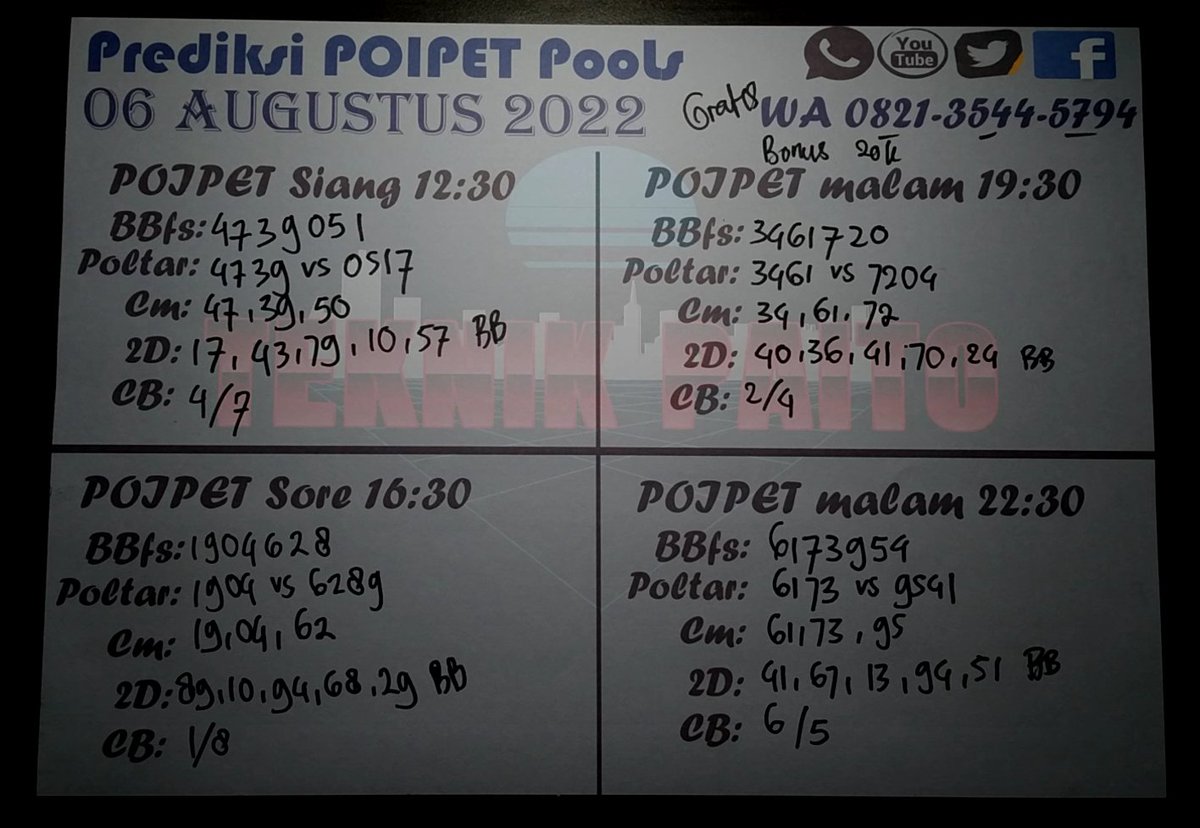 Prediksi POIPET Pools
You Tube
f
06 AUGUSTUS 2022
Gratis WA 0821-3544-5794
Bonus 20K
POIPET Siang 12:30
BBfs: 4739051
Poltar: 4739 vs 0517
Cm: 47, 39, 50
2D: 17, 43, 79, 10, 57 BB
CB: 4/7
POIPET malam 19:30
BBfs: 3461720
Poltar: 3461 vs 7204
Cm: 34, 61, 72
2D: 40, 36, 41, 70, 24 BB
CB: 2/4
TEKNIK PAITO
POIPET Sore 16:30
BBfs: 1904628
Poltar: 1904 vs 6289
Cm: 19, 04, 62
2D: 89, 10, 94, 68, 29 BB
CB: 1/8
POIPET malam 22:30
BBfs: 6173954
Poltar: 6173 vs 9541
Cm: 61, 73, 95
2D: 41, 67, 13, 94, 51 BB
CB: 6/5